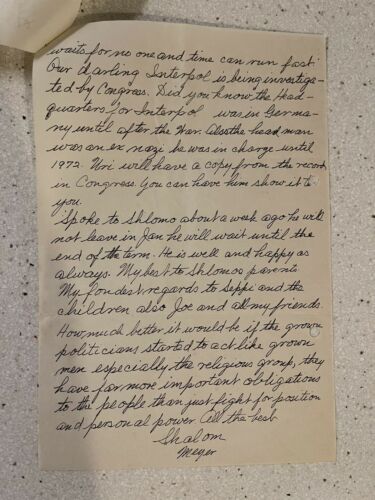 waits for no one and time can run fast.
Our darling Interpol is being investiga-
ted by Congress. Did you know, the Head-
quarters for Interpol was in Germa-
ny until after the War. Also the head man
was an ex nazi he was in charge until
1972. Uri will have a copy from the record
in Congress. You can have him show it to
you.
Spoke to Shlomo about a week ago he will
not leave in Jan he will wait until the
end of the term. He is well and happy as
always. My best to Shlomos parents
My fondest regards to Seppi and the
children also Joe and all my friends.
How much better it would be if the grown
politicians started to act like grown
men especially the religious group, they
have far more important obligations
to the people than just fight for position
and personal power. All the best
Shalom
Meyer